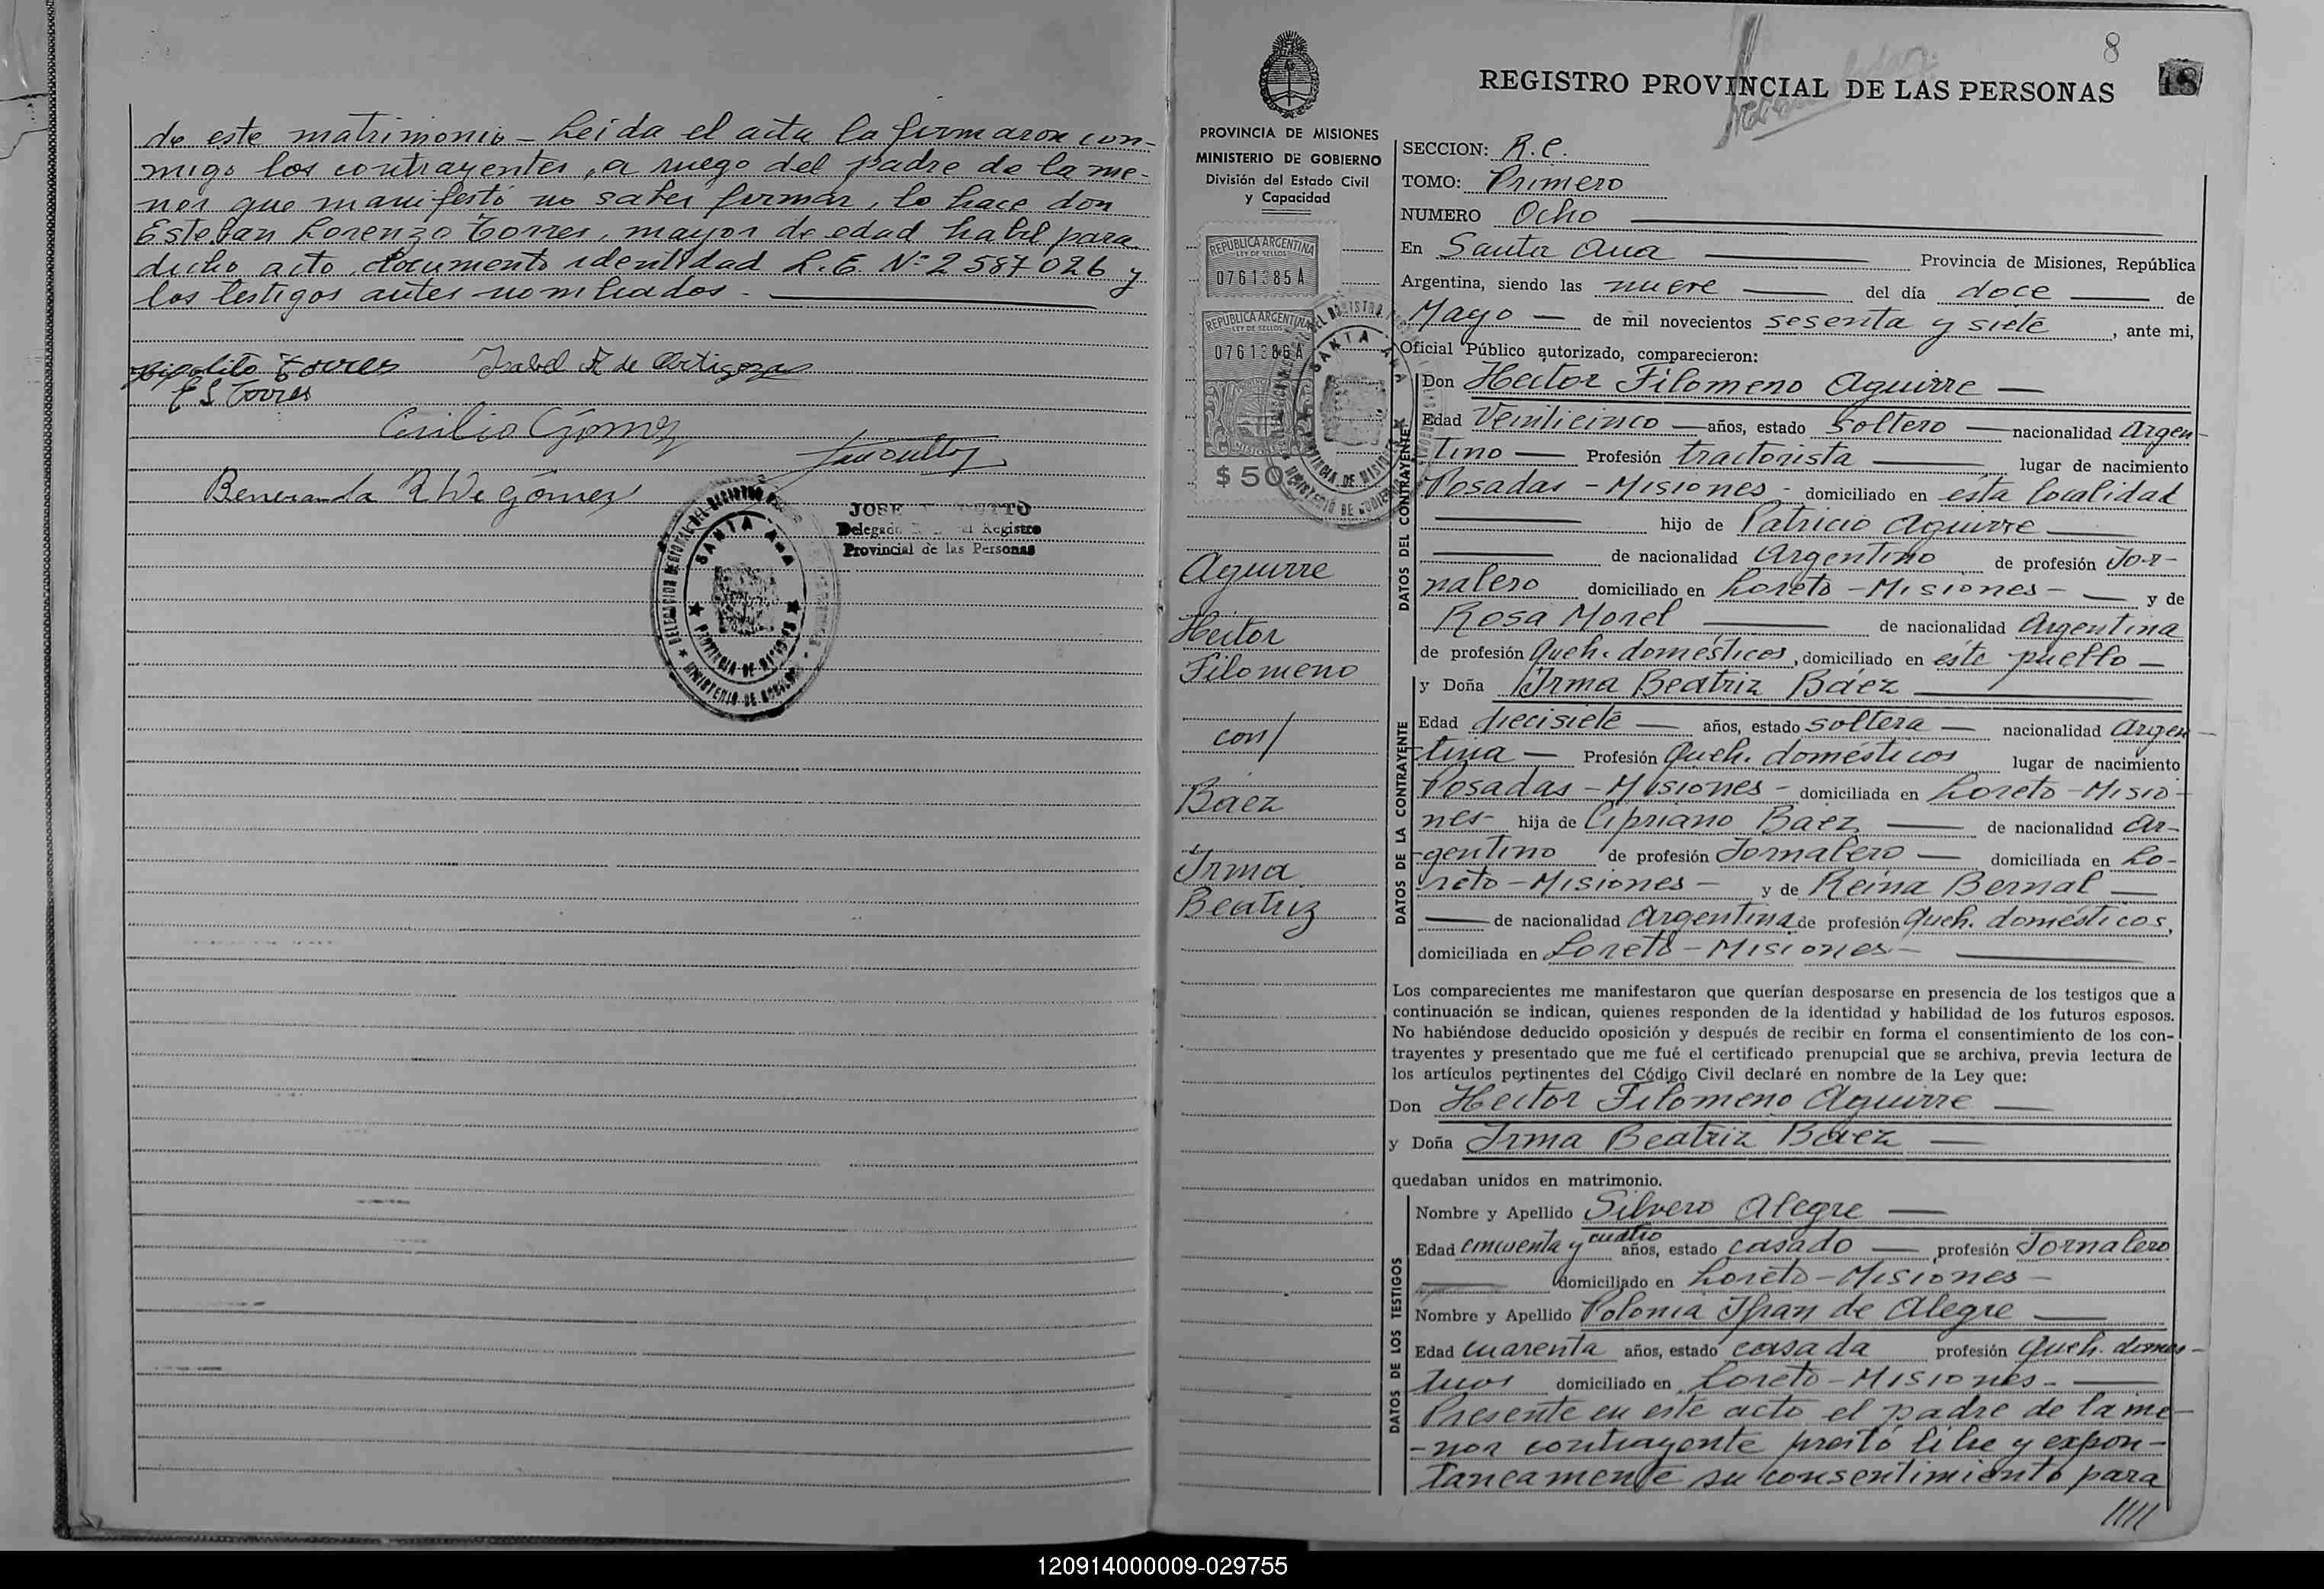 de este matrimonio - Leida el acta la firmaron con-
migo los contrayentes, a ruego del padre de la me-
nor que manifestó no saber firmar, lo hace don
Esteban Lorenzo Torres, mayor de edad habil para
dicho acto, documento identidad L.E. Nº 2587026 y
los testigos antes nombrados.
Hipolito Torres Isabel F. de Artigoza
E L Torres
Cirilio Gómez
Beneranda R de Gómez
JOSE
Delegado Registro
Provincial de las Personas
DELEGACION REGIONAL DEL REGISTRO
SANTA ANA
PROVINCIA DE MISIONES
MINISTERIO DE GOBIERNO
8
REGISTRO PROVINCIAL DE LAS PERSONAS 48
PROVINCIA DE MISIONES
MINISTERIO DE GOBIERNO
División del Estado Civil
y Capacidad
REPUBLICA ARGENTINA
LEY DE SELLOS
0761385A
REPUBLICA ARGENTINA
LEY DE SELLOS
0761386A
MISIONES
$ 50
SANTA ANA
PROVINCIA DE MISIONES
MINISTERIO DE GOBIERNO
Aguirre
Hector
Filomeno
con/
Báez
Irma
Beatriz
SECCION: R.C.
TOMO: Primero
NUMERO Ocho
En Santa Ana Provincia de Misiones, República
Argentina, siendo las nueve del día doce de
Mayo de mil novecientos sesenta y siete, ante mi,
Oficial Público autorizado, comparecieron:
DATOS DEL CONTRAYENTE
Don Hector Filomeno Aguirre
Edad Veinticinco años, estado soltero nacionalidad Argen-
tino Profesión tractorista lugar de nacimiento
Posadas - Misiones - domiciliado en esta localidad
hijo de Patricio Aguirre
de nacionalidad Argentino de profesión Jor-
nalero domiciliado en Loreto - Misiones - y de
Rosa Morel de nacionalidad Argentina
de profesión Queh. domésticos, domiciliado en éste pueblo
DATOS DE LA CONTRAYENTE
y Doña Irma Beatriz Báez
Edad diecisiete años, estado soltera nacionalidad Argen-
tina Profesión Queh. domésticos lugar de nacimiento
Posadas - Misiones - domiciliada en Loreto - Misio-
nes- hija de Cipriano Báez de nacionalidad Ar-
gentino de profesión Jornalero domiciliada en Lo-
reto - Misiones - y de Reina Bernal
de nacionalidad Argentina de profesión Queh. domésticos,
domiciliada en Loreto - Misiones -
Los comparecientes me manifestaron que querían desposarse en presencia de los testigos que a
continuación se indican, quienes responden de la identidad y habilidad de los futuros esposos.
No habiéndose deducido oposición y después de recibir en forma el consentimiento de los con-
trayentes y presentado que me fué el certificado prenupcial que se archiva, previa lectura de
los artículos pertinentes del Código Civil declaré en nombre de la Ley que:
Don Hector Filomeno Aguirre
y Doña Irma Beatriz Báez
quedaban unidos en matrimonio.
DATOS DE LOS TESTIGOS
Nombre y Apellido Silvero Alegre
Edad cincuenta y cuatro años, estado casado profesión Jornalero
domiciliado en Loreto - Misiones -
Nombre y Apellido Polonia Ifran de Alegre
Edad cuarenta años, estado casada profesión Queh. domes-
ticos domiciliado en Loreto - Misiones -
Presente en este acto el padre de la me-
-nor contrayente prestó libre y expon-
taneamente su consentimiento para
////
120914000009-029755